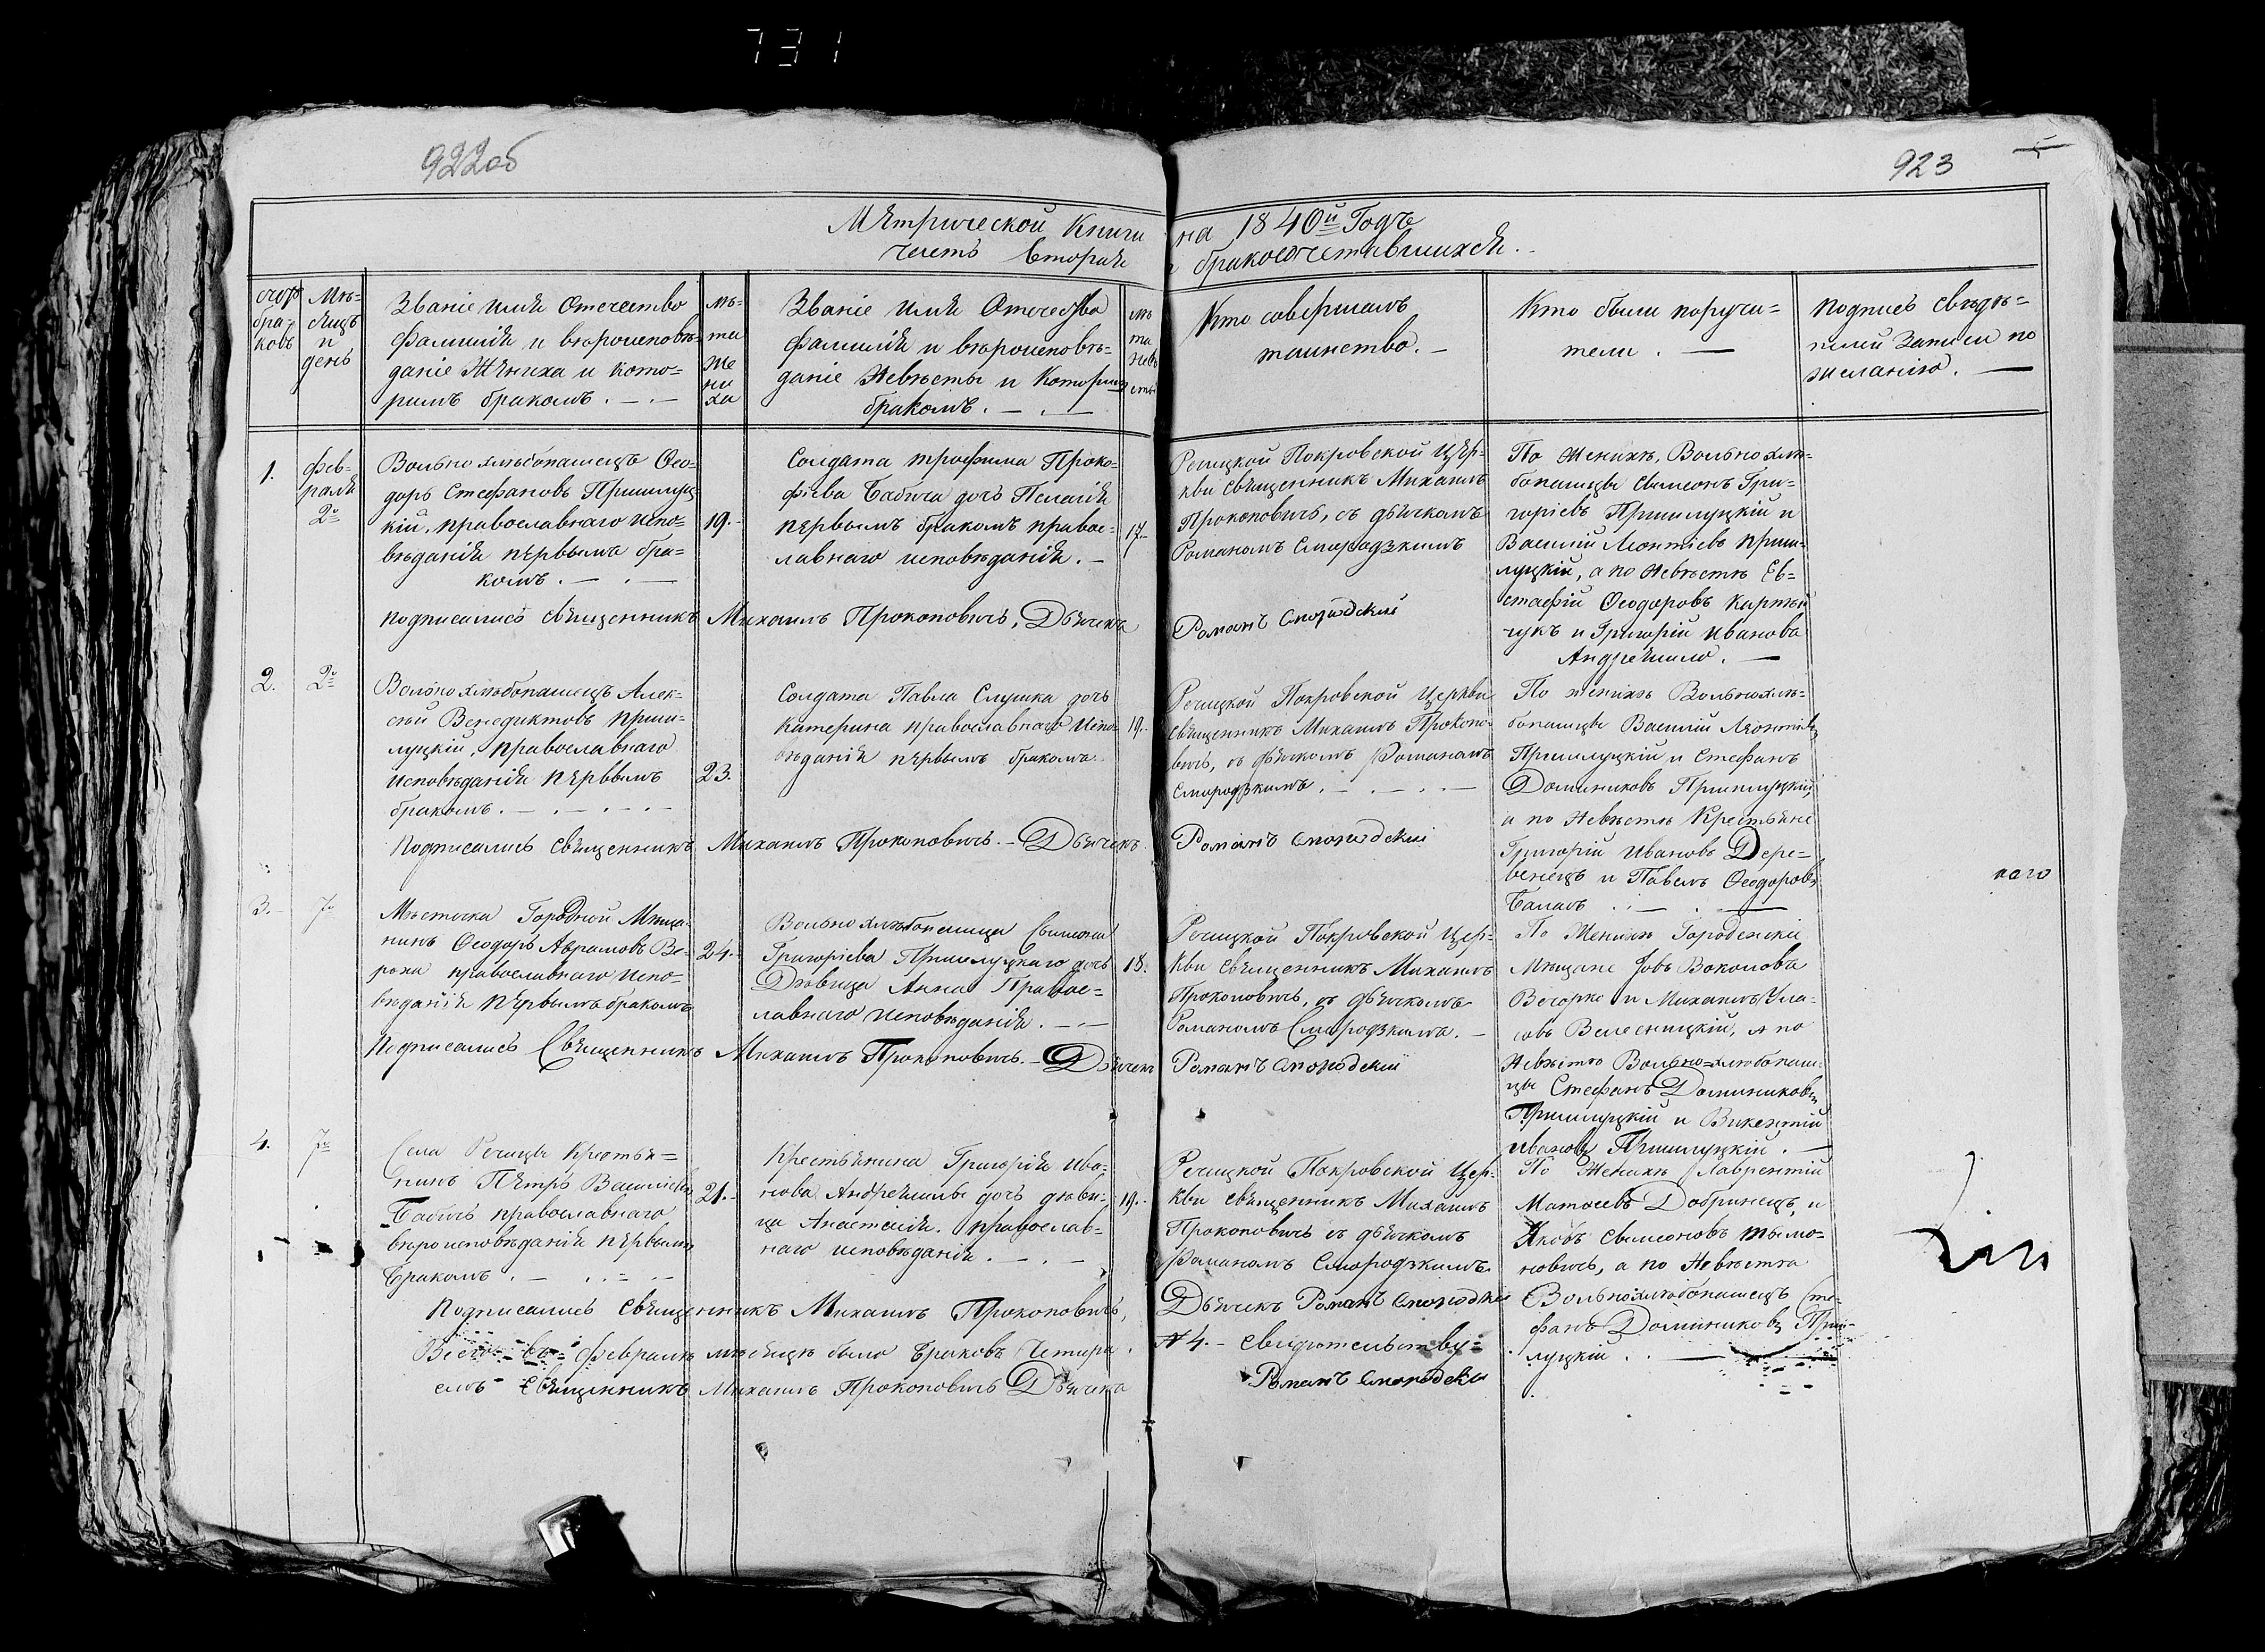 731
922об
923
Метрической Книги на 1840й Годъ
часть вторая бракосочетавшихся.
счотъ бра-
ковъ
Мѣ-
сяцъ
и
день
Званіе имя Отечество
фамилія и вѣроисповѣ-
даніе Жениха и кото-
рымъ бракомъ.
лѣ-
та
же
ни
ха
Званіе имя Отечество
фамилія и вѣроисповѣ-
даніе Невѣсты и которымъ
бракомъ.
лѣ
та
невѣ
сты
Кто совершалъ
таинство.
Кто были поручи-
тели.
подпись свидѣ-
телей записи по
желанію.
1.
фев-
раля
2о
Вольно хлѣбопашецъ Ѳео-
доръ Стефановъ Пришлуц-
кій, православнаго испо-
вѣданія первымъ бра-
комъ.
19.
Солдата трофима Проко-
фіева Бабича дочь Пелагія
первымъ бракомъ правос-
лавнаго исповѣданія.
17.
Речицкой Покровской Цер-
кви священникъ Михаилъ
Прокоповичъ, съ дьячкомъ
Романомъ Смородзкимъ
По женихѣ, Вольно хлѣ-
бопашцы Симеонъ Гри-
горіевъ Пришлуцкій и
Василій Леонтіевъ Приш-
луцкій, а по невѣстѣ Ев-
стафій Ѳеодоровъ
и Григорій Ивановъ
Андреишло.
подписались священникъ Михаилъ Прокоповичъ, Дьячекъ Романъ Смородскій
2.
2о
Вольно хлѣбопашецъ Алек-
сѣй Венедиктовъ приш-
луцкій, православнаго
исповѣданія первымъ
бракомъ.
23.
Солдата Павла Слушка дочь
катерина православнаго испо-
вѣданія первымъ бракомъ
19.
Речицкой Покровской Церкви
священникъ Михаилъ Прокопо-
вичъ, съ дьячкомъ Романомъ
Смородзкимъ.
По женихѣ Вольнохлѣ-
бопашцы Василій Леонтіевъ
Пришлуцкій и Стефанъ
Доминиковъ Пришлуцкій,
а по невѣстѣ Крестьяне
Григорій Ивановъ Дере-
венецъ и Павелъ Ѳеодоровъ
Подписались священникъ Михаилъ Прокоповичъ. Дьячекъ Романъ Смородскій
3.
7о
Мѣстечка Городной Мѣща-
нинъ Ѳеодоръ Абрамовъ Ве-
православнаго испо-
вѣданія первымъ бракомъ
24.
Вольно хлѣбопашца Симеона
Григоріева Пришлуцкаго дочь
Дѣвица Анна Правос-
лавнаго исповѣданія.
18.
Речицкой Покровской Цер-
кви священникъ Михаилъ
Прокоповичъ, съ дьячкомъ
Романомъ Смородзкимъ.
По женихѣ Городенскіе
Мѣщане
Вечорко и Михаилъ Ула-
совъ Велесницкій, а по
невѣстѣ Вольно-хлѣбопаш-
цы Стефанъ Доминиковъ
Пришлуцкій и Викентій
Ивановъ Пришлуцкій.
наго
Подписались Священникъ Михаилъ Прокоповичъ. Дьячекъ Романъ Смородскій
4.
7о
Села Речицы Крестья-
нинъ Петръ Василіевъ
Бабичъ православнаго
вѣроисповѣданія первымъ
бракомъ.
21.
Крестьянина Григорія Ива-
нова Андреишлы дочь дѣви-
ца Анастасія. православ-
наго исповѣданія.
19.
Речицкой Покровской Цер-
кви священникъ Михаилъ
Прокоповичъ съ дьячкомъ
Романомъ Смородзкимъ.
По женихѣ Лаврентій
Матѳеевъ Добринецъ, и
Яковъ Симеоновъ тымо-
новичъ, а по невѣстѣ
Вольнохлѣбопашецъ Сте-
фанъ Доминиковъ Приш-
луцкій.
Подписались священникъ Михаилъ Прокоповичъ, Дьячекъ Романъ Смородскій
Всего въ Февралѣ мѣсяцѣ было браковъ Четыре №4. Свидѣтельству-
емъ Священникъ Михаилъ Прокоповичъ Дьячекъ Романъ Смородскій